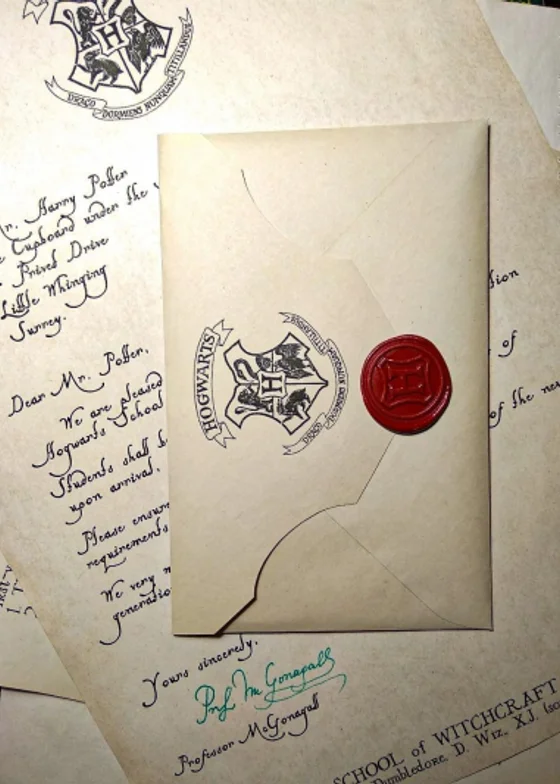 DRACO DORMIENS NUNQUAM TITILLANDUS
Mr. Harry Potter
Cupboard under the
Privet Drive
Little Whinging
Surrey.
Dear Mr. Potter,
We are pleased
Hogwarts School
of
Students shall
of the new
upon arrival.
Please ensure
requirements
We very
Yours sincerely,
Prof McGonagall
Professor McGonagall
SCHOOL of WITCHCRAFT
Dumbledore, D. Wiz., X.J.
HOGWARTS
DRACO DORMIENS NUNQUAM TITILLANDUS
H